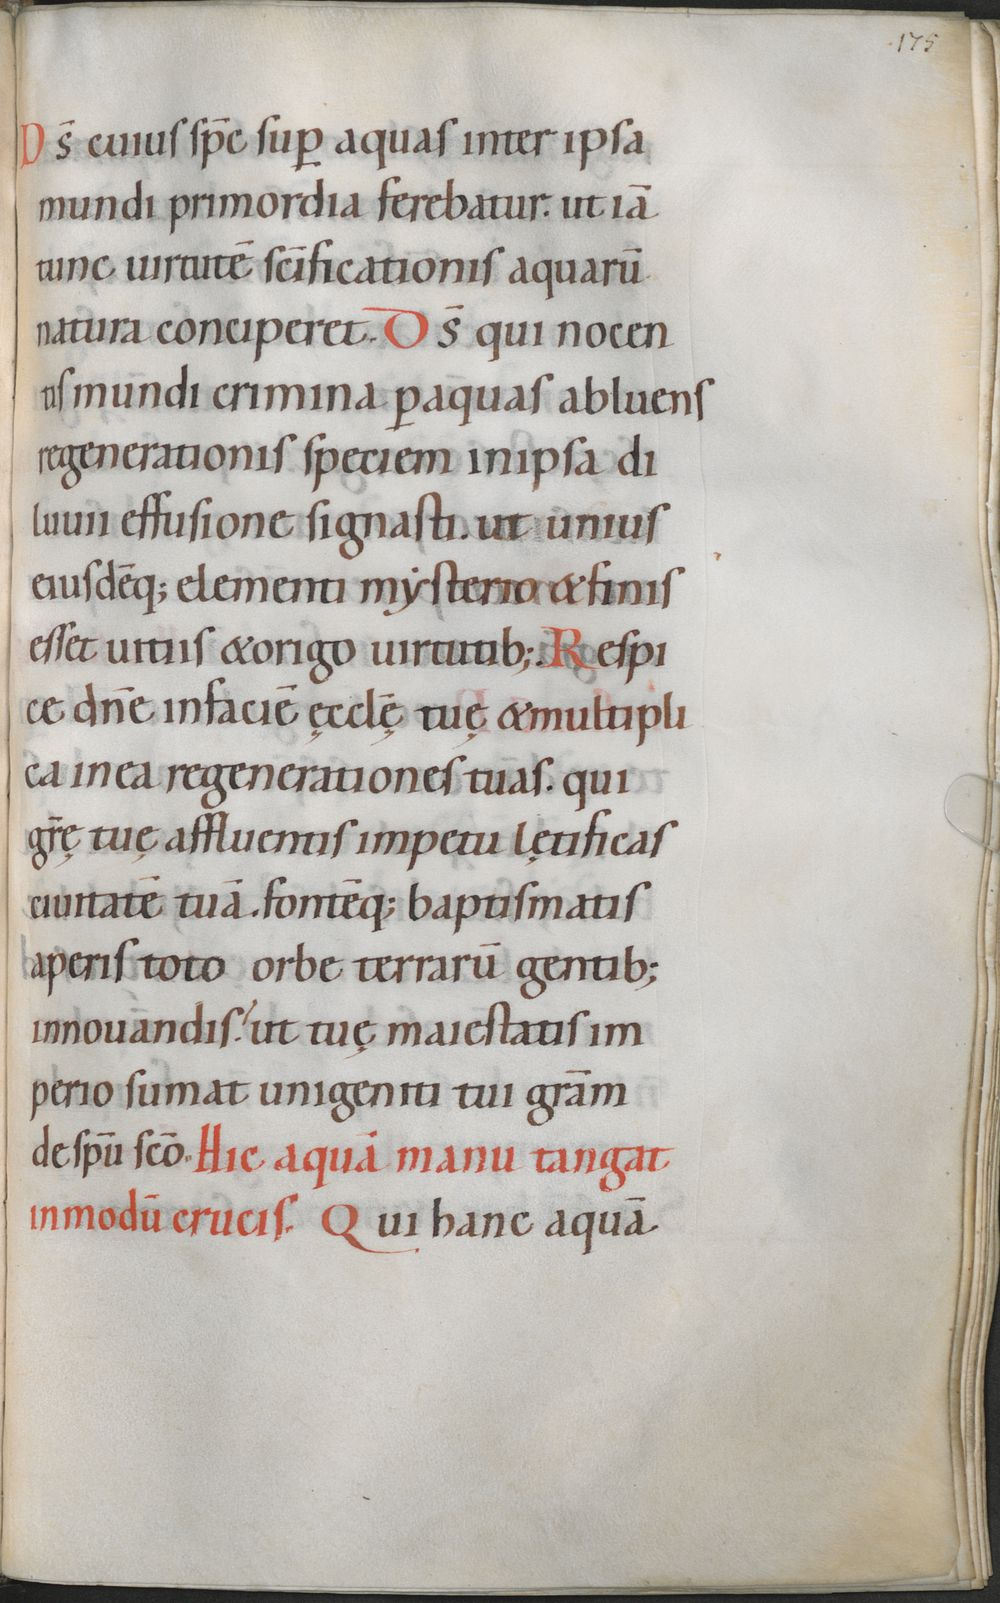 175
Ds̄ cuius sp̄c sup̱ aquas inter ipsa
mundi primordia ferebatur. ut iā
tunc uirtutē sc̄ificationis aquarū
natura conciperet. Ds̄ qui nocen
tis mundi crimina p̱ aquas abluens
regenerationis speciem inipsa di
luuii effusione signasti. ut unius
eiusdēq; elementi mẏsterio & finis
esset uitiis & origo uirtutib;. Respi
ce dn̄e infaciē ęcclę̄ tuę & multipli
ca inea regenerationes tuas. qui
gr̄ę tuę affluentis impetu lętificas
ciuitatē tuā. fontēq; baptismatis
aperis toto orbe terrarū gentib;
innouandis. ut tuę maiestatis im
perio sumat unigeniti tui grām
de spū scō. Hic aquā manu tangat
inmodū crucis. Qui hanc aquā